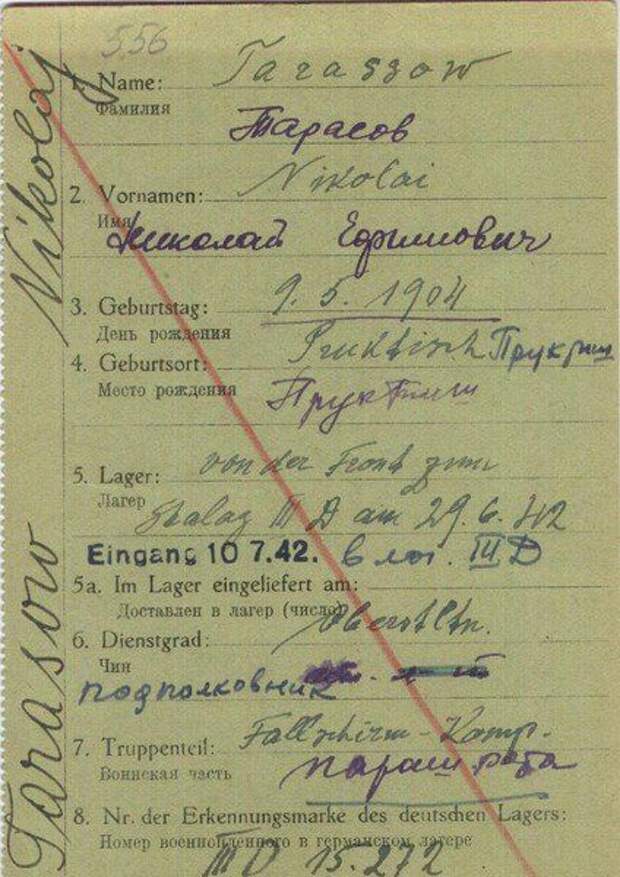 556
1. Name: Tarassow
Фамилия
Тарасов
2. Vornamen: Nikolai
Имя
Николай Ефимович
3. Geburtstag: 9.5.1904
День рождения
4. Geburtsort:
Место рождения
5. Lager: von der Front zum
Лагер
Stalag III D am 29.6.42
Eingang 10 7.42. в лаг. III D
5a. Im Lager eingeliefert am:
Доставлен в лагер (число)
6. Dienstgrad: Oberstltn.
Чин
подполковник
7. Truppenteil: Fallschirm-Komp.
Воинская часть параш. рота
8. Nr. der Erkennungsmarke des deutschen Lagers:
Номер военнопленного в германском лагере
III D 15.272
Tarasow Nikolaj